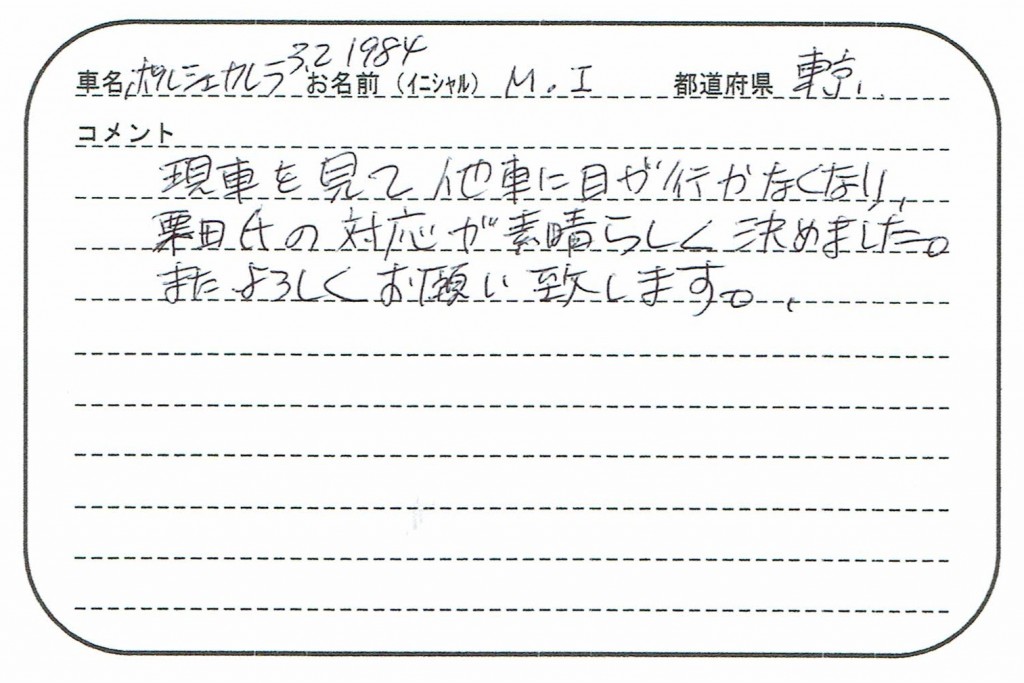 車名 ポルシェカレラ3.2 1984 お名前（イニシャル） M.I 都道府県 東京
コメント
現車を見て他車に目が行かなくなり、
栗田氏の対応が素晴らしく決めました。
またよろしくお願い致します。